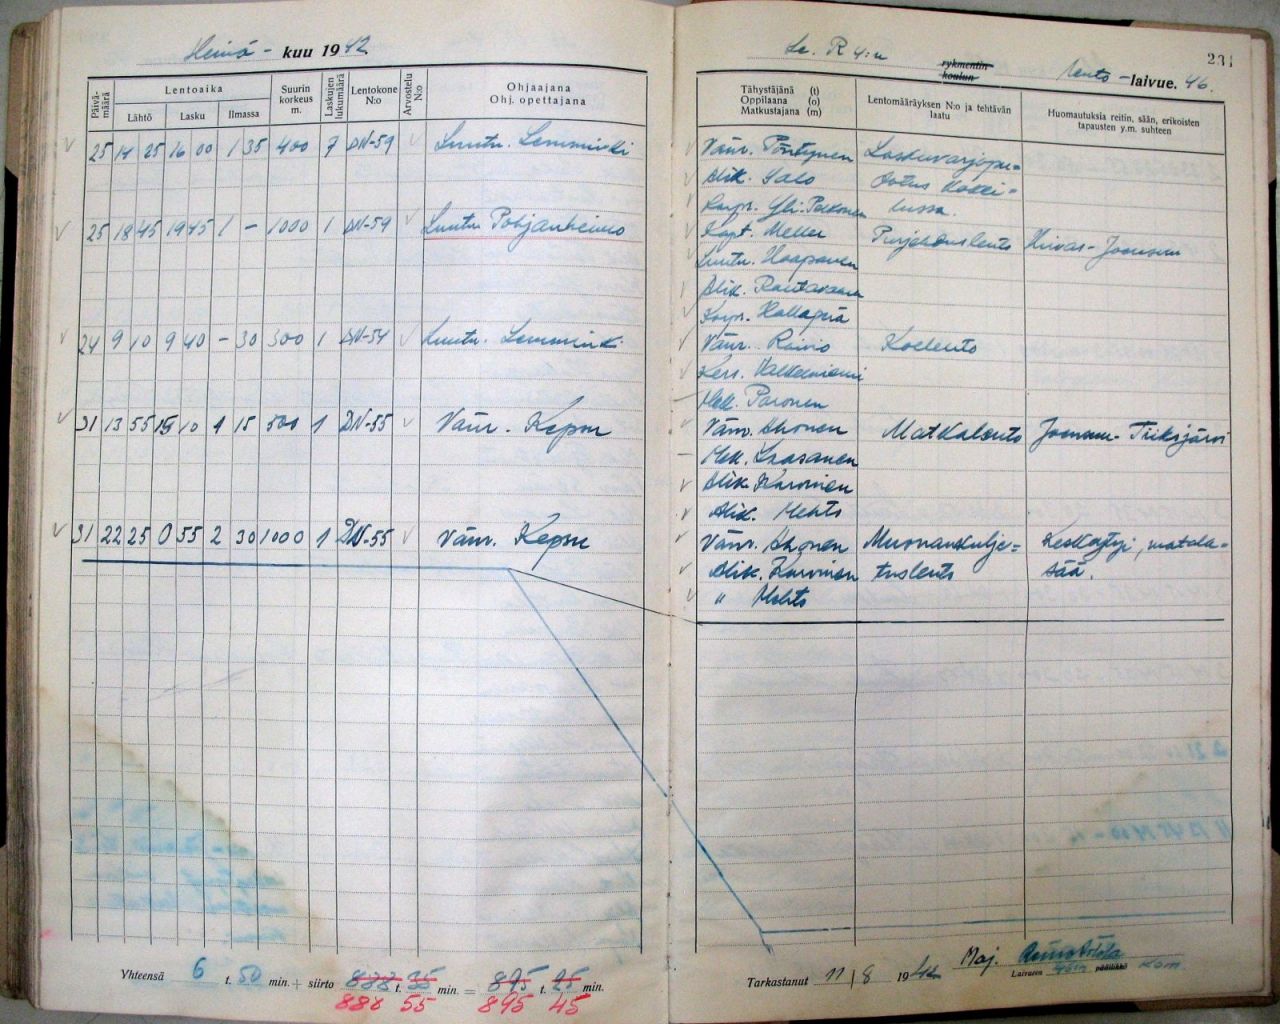 Heinä - kuu 1942
Le. R 4:n rykmentin koulun Lento - laivue. 46.
231
Päivämäärä
Lentoaika
Lähtö Lasku Ilmassa
Suurin korkeus m.
Laskujen lukumäärä
Lentokone N:o
Arvostelu N:o
Ohjaajana
Ohj. opettajana
Tähystäjänä (t)
Oppilaana (o)
Matkustajana (m)
Lentomääräyksen N:o ja tehtävän laatu
Huomautuksia reitin, sään, erikoisten tapausten y.m. suhteen
25 14 25 16 00 1 35 400 7 DN-59 Luutn. Lemminki Vänr. Pöntynen Laskuvarjopu=
Alik. Salo dotus Kokki-
Korpr. Yli-Pekkonen lussa.
25 18 45 19 45 1 - 1000 1 DN-59 Luutn Pohjanheimo Kapt. Meller Purjehduslento Hirvas-Joensuu
Luutn. Haapanen
Alik. Rautavaara
Korpr. Hallaperä
24 9 10 9 40 - 30 300 1 DN-54 Luutn. Lemminki Vänr. Raivio Koelento
Kers. Valkeaniemi
Mek. Paronen
31 13 55 15 10 1 15 500 1 DN-55 Vänr. Kepsu Vänr. Ahonen Matkalento Joensuu-Tiiksjärvi
Mek. Laasanen
Alik. Karvinen
Alik. Mehto
31 22 25 0 55 2 30 1000 1 DN-55 Vänr. Kepsu Vänr. Ahonen Muonankulje= Keskeytyi, matala-
Alik. Karvinen tuslento sää.
" Mehto
Yhteensä 6 t. 50 min. + siirto 888 t. 35 min. = 895 t. 25 min.
888 55 895 45
Tarkastanut 11/8 1942 Maj.
Laivueen päällikkö kom